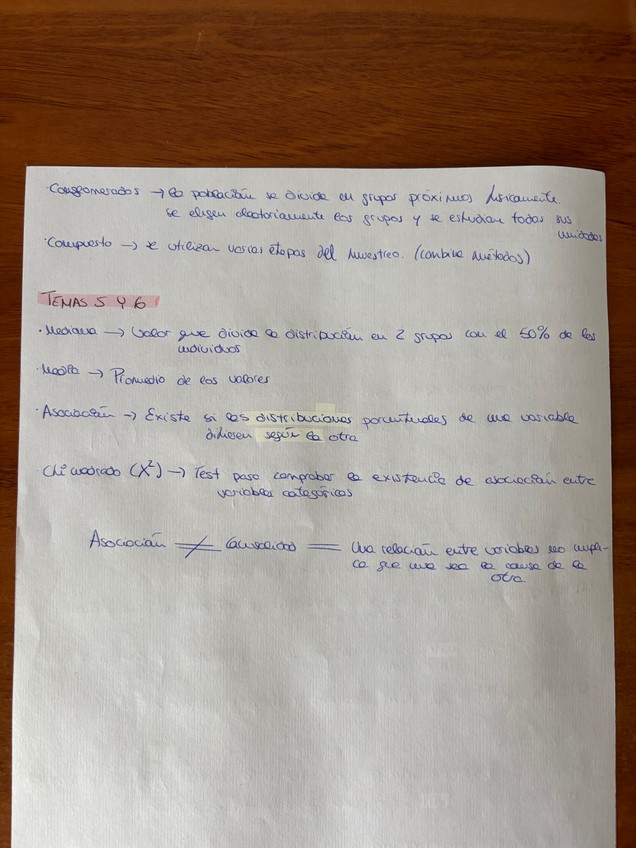 ·Conglomerados → la población se divide en grupos próximos físicamente.
se eligen aleatoriamente los grupos y se estudian todas sus
unidades
·Compuesto → se utilizan varias etapas del muestreo. (combina métodos)
TEMAS 5 Y 6
·Mediana → Valor que divide la distribución en 2 grupos con el 50% de los
individuos
·Media → Promedio de los valores
·Asociación → Existe si las distribuciones porcentuales de una variable
difieren según la otra
Chi cuadrado (X²) → Test para comprobar la existencia de asociación entre
variables categóricas
Asociación ≠ Causalidad = Una relación entre variables no impli-
ca que una sea la causa de la
otra